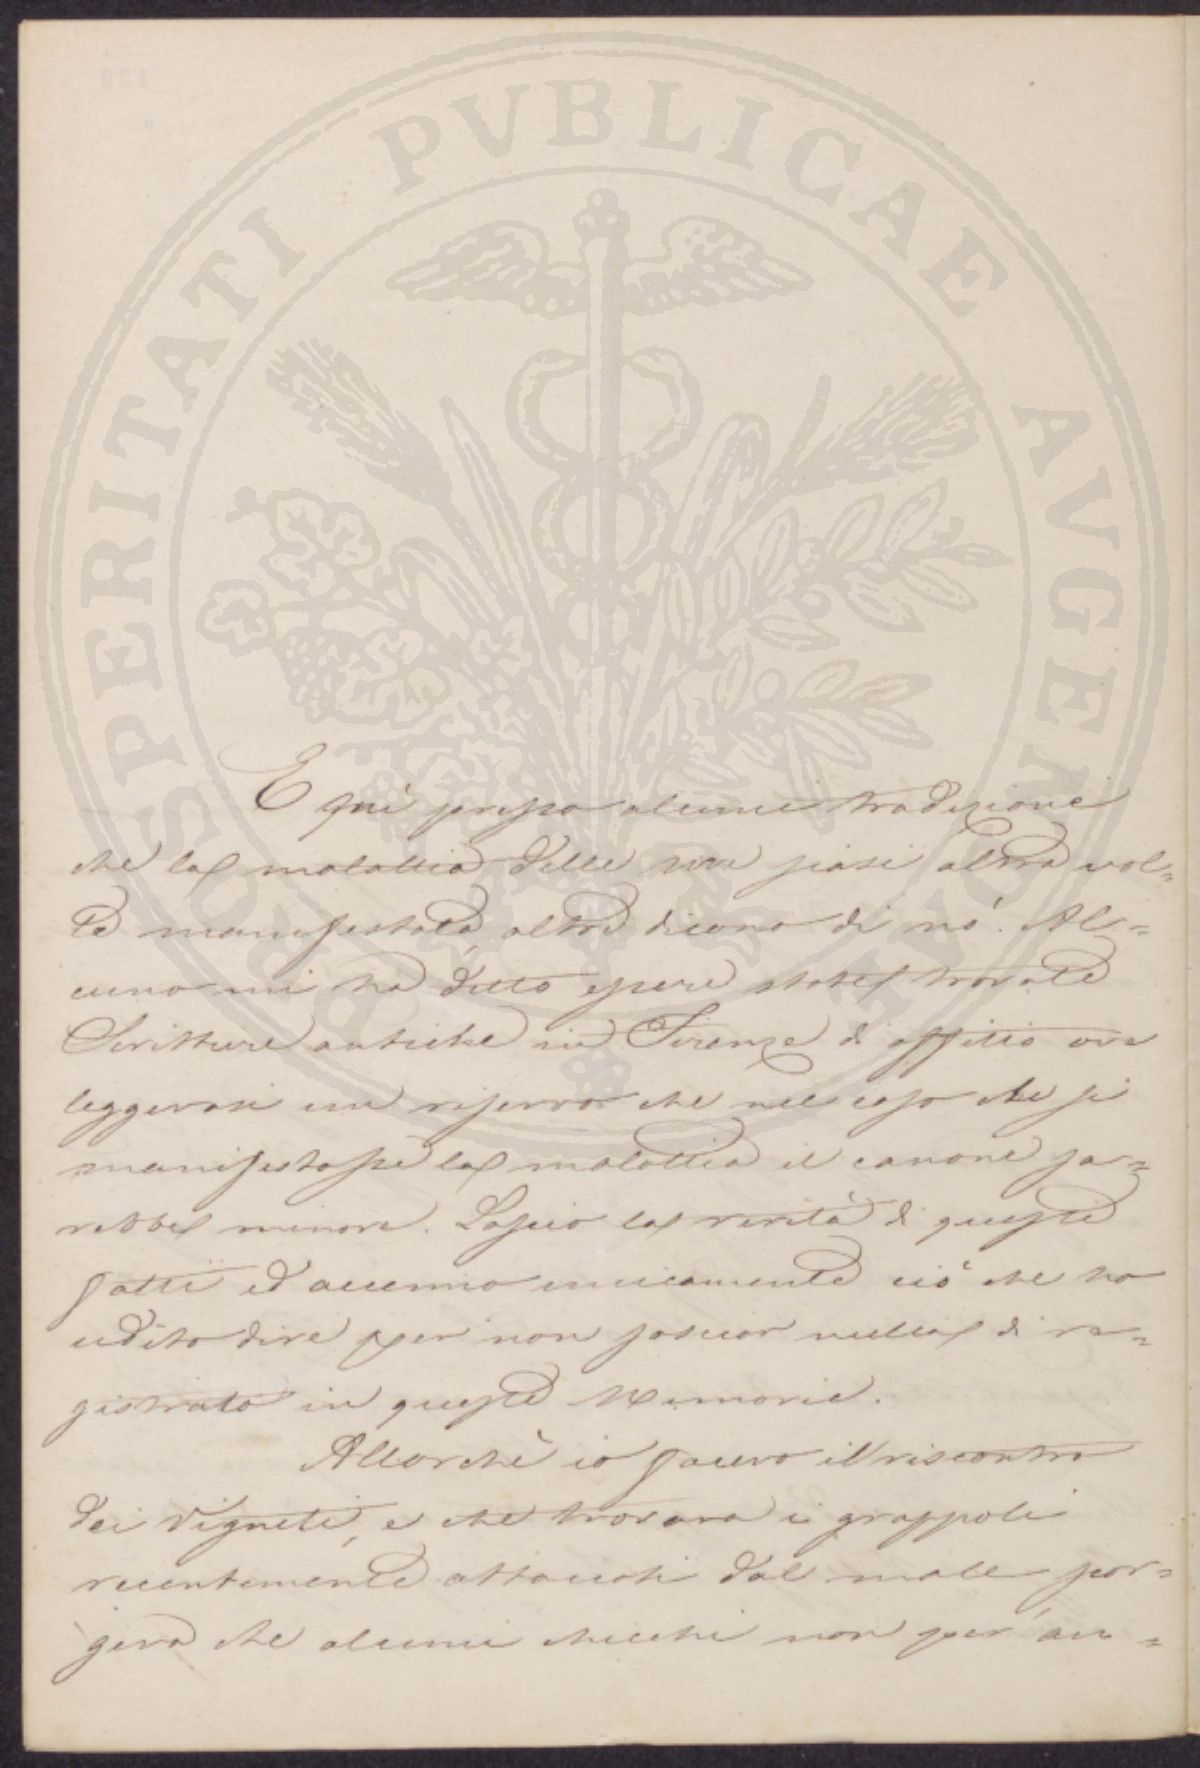 PROSPERITATI PVBLICAE AVGENDAE
E quì presso alcuni tradizione
che la malattia delle uve siasi altra vol=
ta manifestata, altri dicono di nò. Al=
cuno mi ha detto essere state trovate
Scritture antiche in Firenze di affitto ove
leggevasi una riserva che nel caso che si
manifestasse la malattia il canone sa=
rebbe minore. Lascio la verità di questi
fatti ed accenno unicamente ciò che ho
udito dire per non lasciar nulla di re=
gistrato in queste Memorie.
Allorchè io facevo il riscontro
dei Vigneti, e che trovava i grappoli
recentemente attaccati dal male scor=
geva che alcuni chicchi non per an=